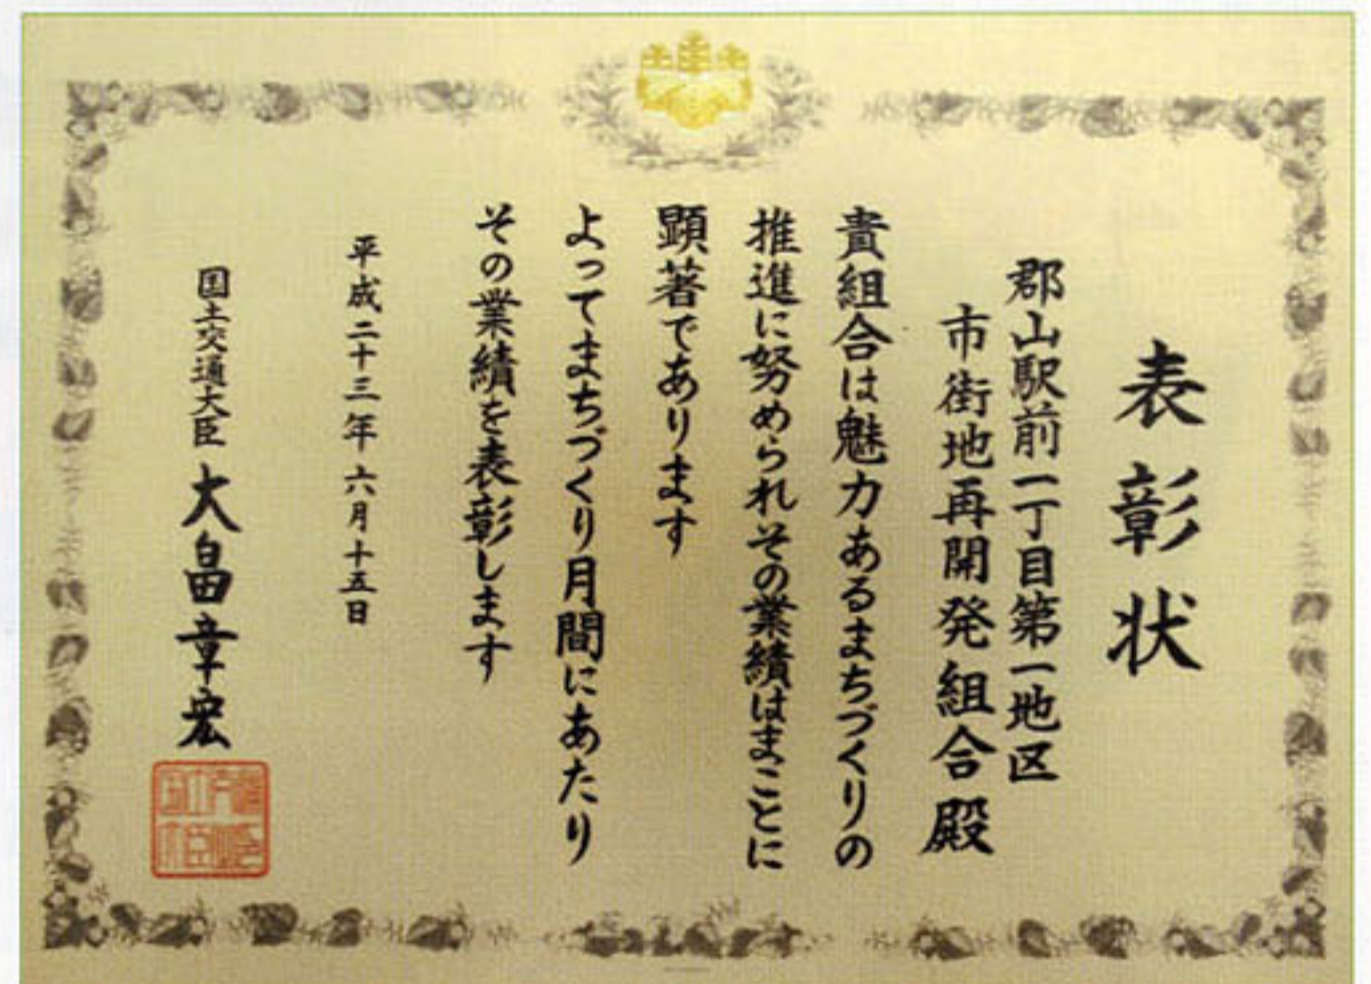 表彰状
郡山駅前一丁目第一地区
市街地再開発組合殿
貴組合は魅力あるまちづくりの
推進に努められその業績はまことに
顕著であります
よってまちづくり月間にあたり
その業績を表彰します
平成二十三年六月十五日
国土交通大臣 大畠章宏